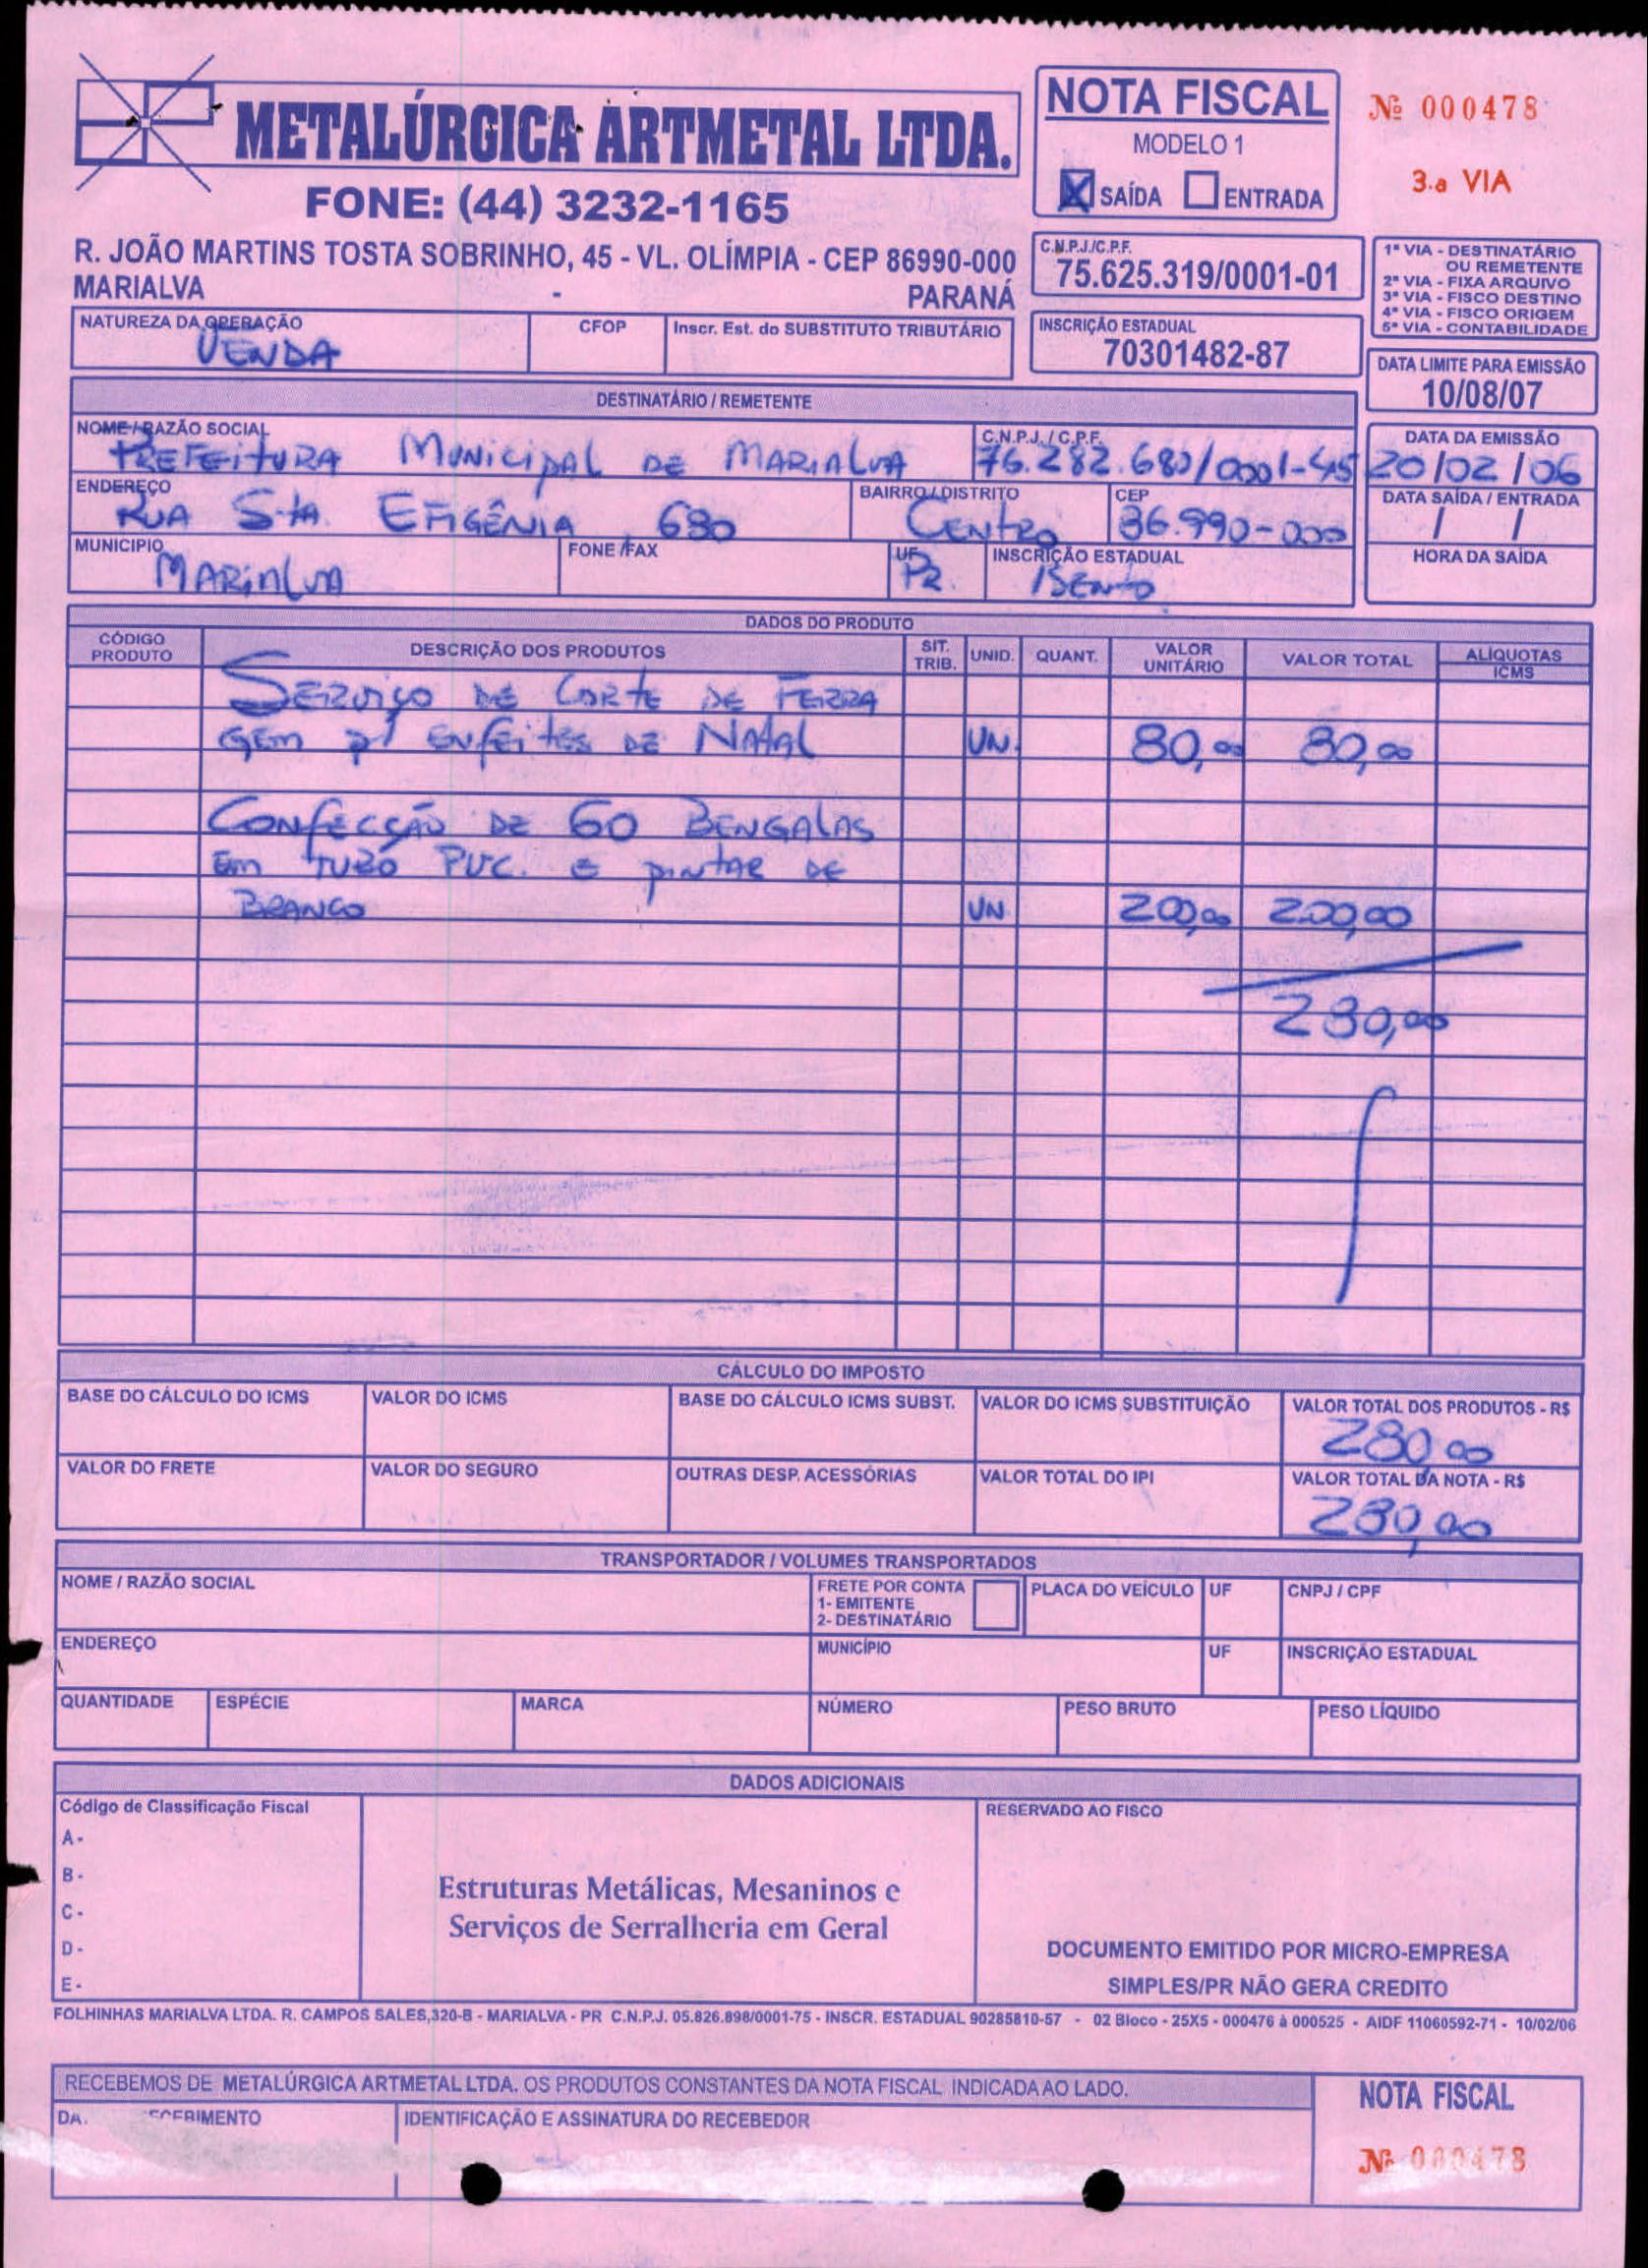 METALÚRGICA ARTMETAL LTDA.
FONE: (44) 3232-1165
R. JOÃO MARTINS TOSTA SOBRINHO, 45 - VL. OLÍMPIA - CEP 86990-000
MARIALVA - PARANÁ
NOTA FISCAL
MODELO 1
X SAÍDA ENTRADA
Nº 000478
3.a VIA
C.N.P.J./C.P.F.
75.625.319/0001-01
1ª VIA - DESTINATÁRIO
OU REMETENTE
2ª VIA - FIXA ARQUIVO
3ª VIA - FISCO DESTINO
4ª VIA - FISCO ORIGEM
5ª VIA - CONTABILIDADE
NATUREZA DA OPERAÇÃO CFOP Inscr. Est. do SUBSTITUTO TRIBUTÁRIO
VENDA
INSCRIÇÃO ESTADUAL
70301482-87
DATA LIMITE PARA EMISSÃO
10/08/07
DESTINATÁRIO / REMETENTE
NOME / RAZÃO SOCIAL C.N.P.J. / C.P.F. DATA DA EMISSÃO
PREFEITURA MUNICIPAL DE MARIALVA 76.282.680/0001-45 20/02/06
ENDEREÇO BAIRRO / DISTRITO CEP DATA SAÍDA / ENTRADA
RUA Sta EFIGÊNIA 680 CENTRO 86.990-000 / /
MUNICIPIO FONE / FAX UF INSCRIÇÃO ESTADUAL HORA DA SAÍDA
MARIALVA PR. ISENTO
DADOS DO PRODUTO
CÓDIGO PRODUTO DESCRIÇÃO DOS PRODUTOS SIT. TRIB. UNID. QUANT. VALOR UNITÁRIO VALOR TOTAL ALÍQUOTAS ICMS
SERVIÇO DE CORTE DE FERRA
GEM p/ ENFEITES DE NATAL UN. 80,00 80,00
CONFECÇÃO DE 60 BENGALAS
Em TUBO PVC. E PINTAR DE
BRANCO UN 200,00 200,00
280,00
CÁLCULO DO IMPOSTO
BASE DO CÁLCULO DO ICMS VALOR DO ICMS BASE DO CÁLCULO ICMS SUBST. VALOR DO ICMS SUBSTITUIÇÃO VALOR TOTAL DOS PRODUTOS - R$
280,00
VALOR DO FRETE VALOR DO SEGURO OUTRAS DESP. ACESSÓRIAS VALOR TOTAL DO IPI VALOR TOTAL DA NOTA - R$
280,00
TRANSPORTADOR / VOLUMES TRANSPORTADOS
NOME / RAZÃO SOCIAL FRETE POR CONTA PLACA DO VEÍCULO UF CNPJ / CPF
1- EMITENTE
2- DESTINATÁRIO
ENDEREÇO MUNICÍPIO UF INSCRIÇÃO ESTADUAL
QUANTIDADE ESPÉCIE MARCA NÚMERO PESO BRUTO PESO LÍQUIDO
DADOS ADICIONAIS
Código de Classificação Fiscal RESERVADO AO FISCO
A -
B -
C -
D -
E -
Estruturas Metálicas, Mesaninos e
Serviços de Serralheria em Geral
DOCUMENTO EMITIDO POR MICRO-EMPRESA
SIMPLES/PR NÃO GERA CREDITO
FOLHINHAS MARIALVA LTDA. R. CAMPOS SALES,320-B - MARIALVA - PR C.N.P.J. 05.826.898/0001-75 - INSCR. ESTADUAL 90285810-57 - 02 Bloco - 25X5 - 000476 à 000525 - AIDF 11060592-71 - 10/02/06
RECEBEMOS DE METALÚRGICA ARTMETAL LTDA. OS PRODUTOS CONSTANTES DA NOTA FISCAL INDICADA AO LADO.
IDENTIFICAÇÃO E ASSINATURA DO RECEBEDOR
NOTA FISCAL
Nº 000478